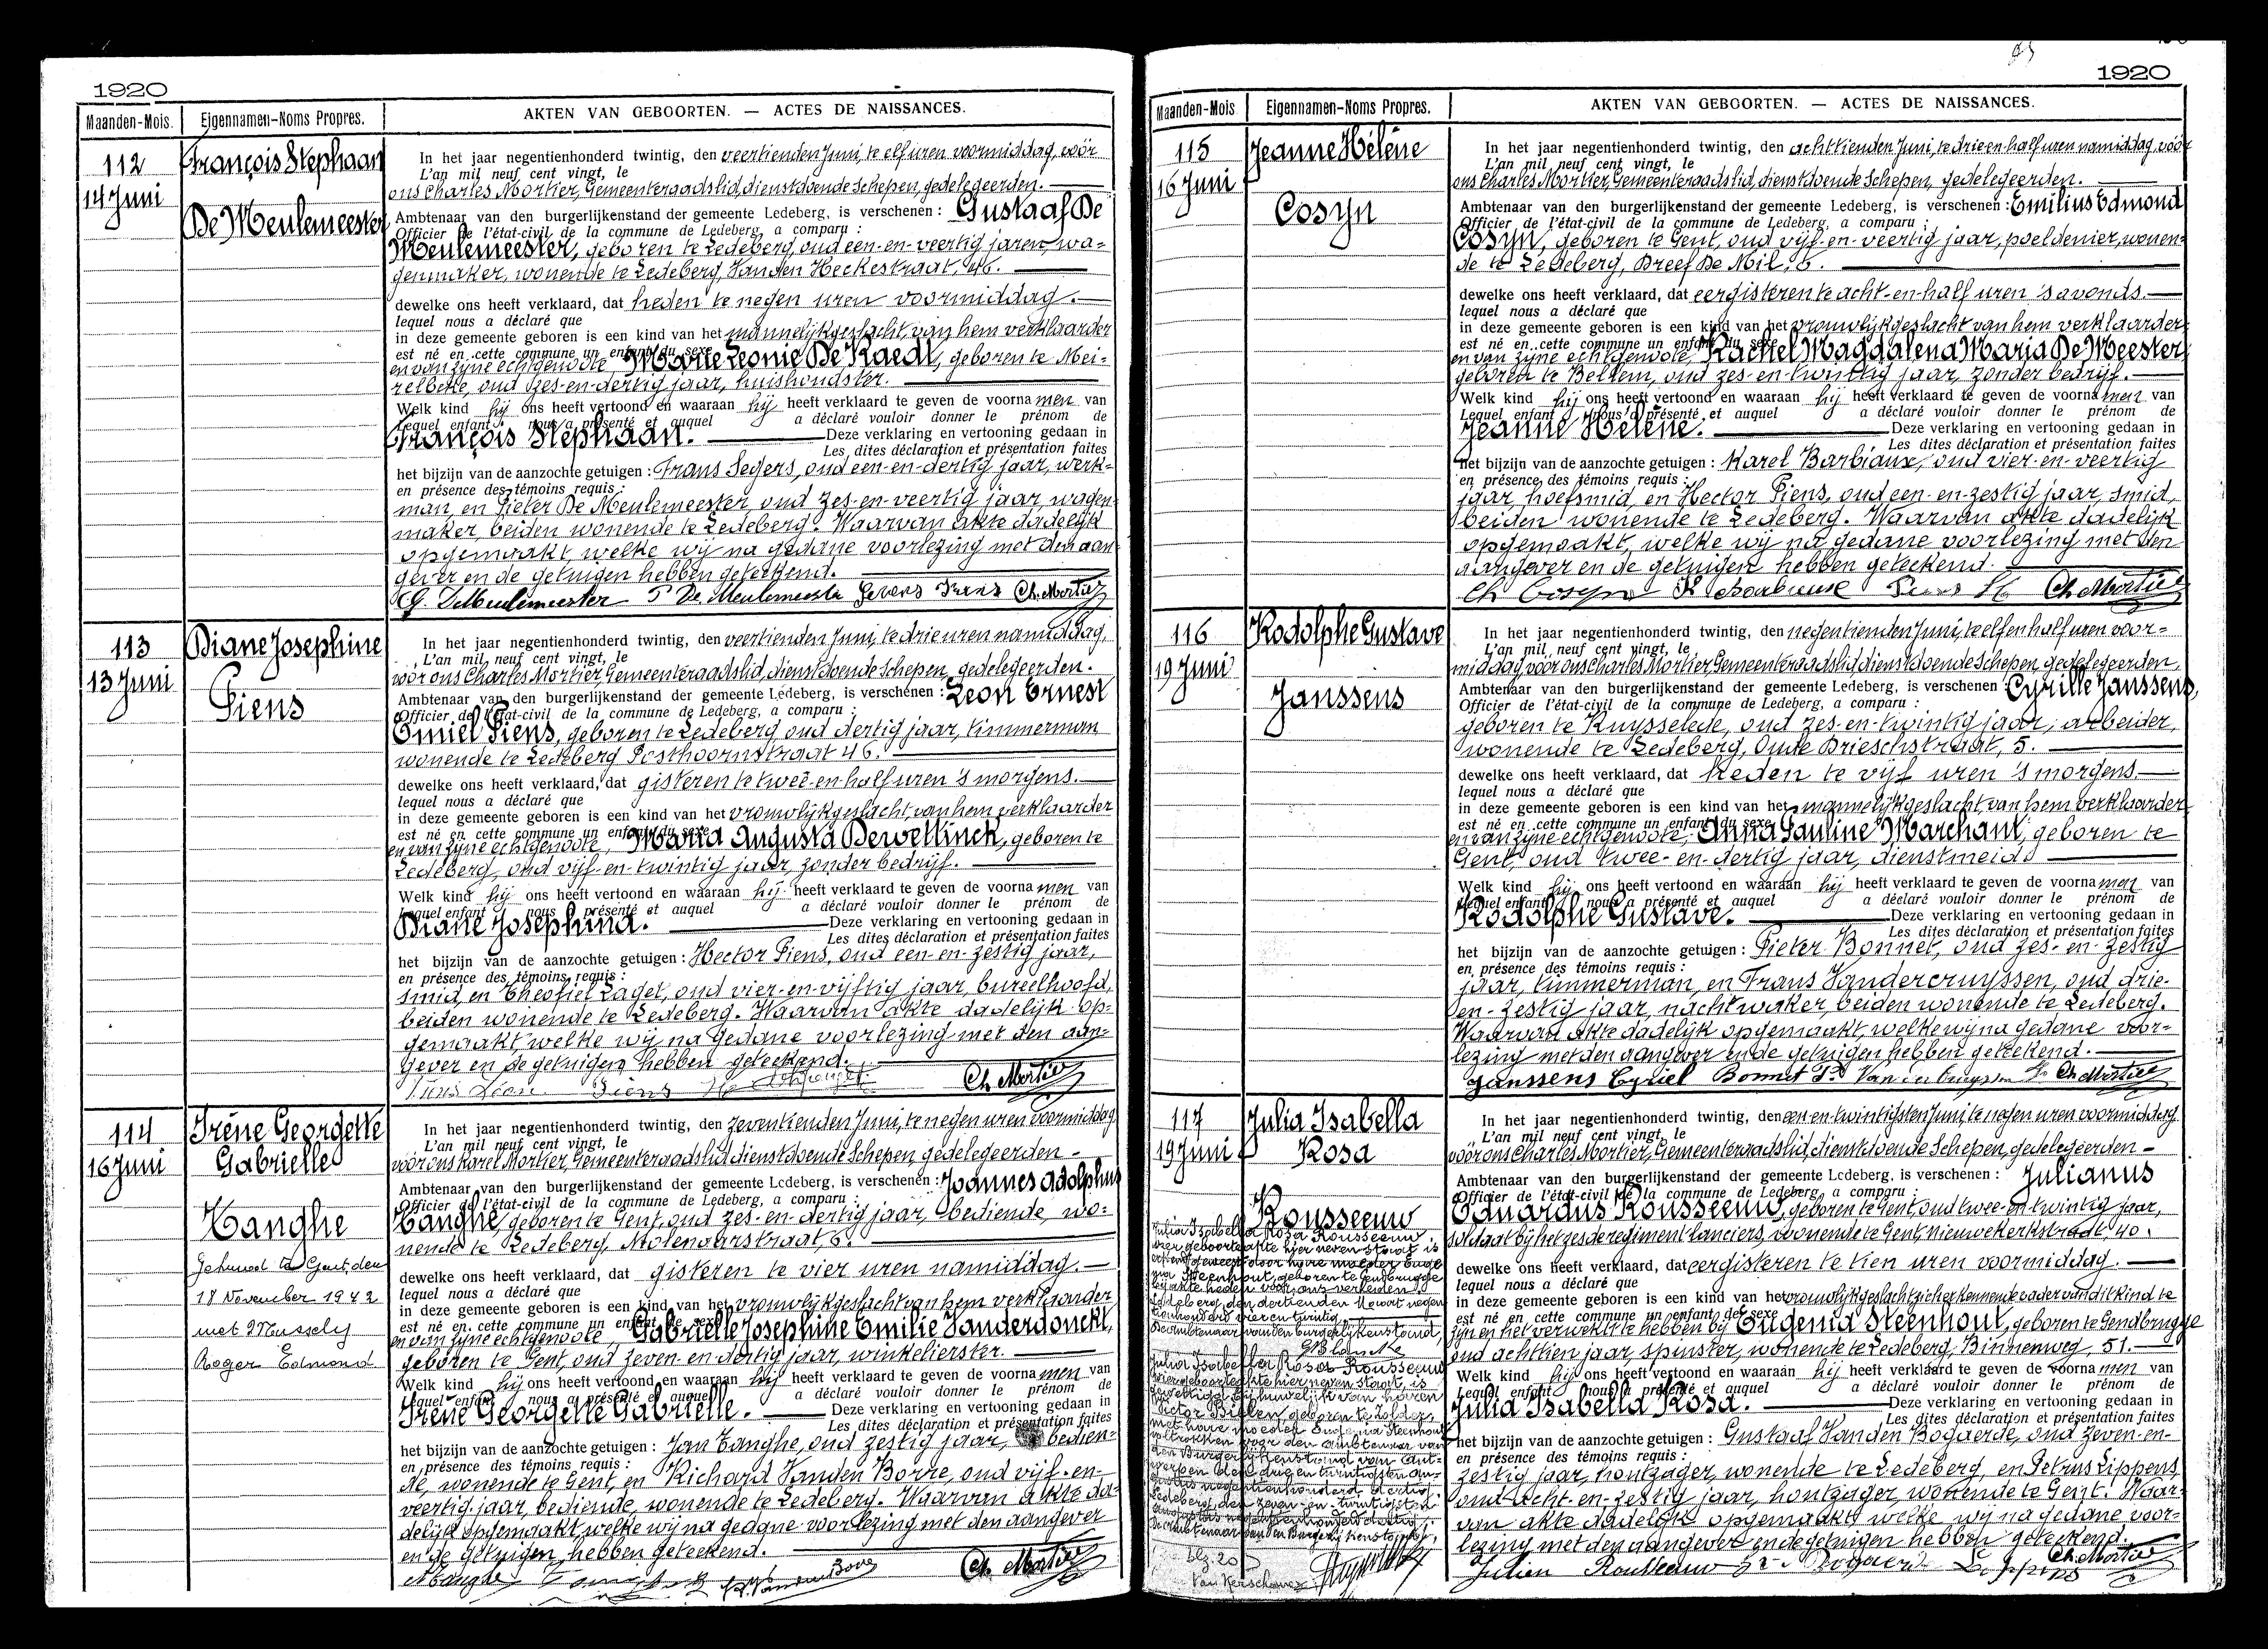 1920
Maanden-Mois.
Eigennamen-Noms Propres.
AKTEN VAN GEBOORTEN. — ACTES DE NAISSANCES.
112
14 Juni
François Stephaan
De Meulemeester
In het jaar negentienhonderd twintig, den veertienden Juni, te elf uren voormiddag, vóór
L'an mil neuf cent vingt, le
ons Charles Mortier, Gemeenteraadslid, dienstdoende Schepen, gedelegeerden.
Ambtenaar van den burgerlijkenstand der gemeente Ledeberg, is verschenen : Gustaaf De
Officier de l'état-civil de la commune de Ledeberg, a comparu :
Meulemeester, geboren te Ledeberg, oud een-en-veertig jaren, wa-
genmaker, wonende te Ledeberg, Vanden Heckestraat, 46.
dewelke ons heeft verklaard, dat heden te negen uren voormiddag.
lequel nous a déclaré que
in deze gemeente geboren is een kind van het mannelijk geslacht, van hem verklaarder
est né en cette commune un enfant du sexe
en van zijne echtgenoote, Marie Leonie De Raedt, geboren te Mei-
relbeke, oud zes-en-dertig jaar, huishoudster.
Welk kind hij ons heeft vertoond en waaraan hij heeft verklaard te geven de voornamen van
Lequel enfant nous a présenté et auquel a déclaré vouloir donner le prénom de
François Stephaan. Deze verklaring en vertooning gedaan in
Les dites déclaration et présentation faites
het bijzijn van de aanzochte getuigen : Frans Segers, oud een-en-dertig jaar, werk-
en présence des témoins requis :
man, en Pieter De Meulemeester, oud zes-en-veertig jaar, wagen-
maker, beiden wonende te Ledeberg. Waarvan akte dadelijk
opgemaakt, welke wij na gedane voorlezing met den aan-
gever en de getuigen hebben geteekend.
G. DeMeulemeester P De Meulemeester Segers Frans Ch. Mortier
113
13 Juni
Diane Josephine
Piens
In het jaar negentienhonderd twintig, den veertienden Juni, te drie uren namiddag,
L'an mil neuf cent vingt, le
vóór ons Charles Mortier, Gemeenteraadslid, dienstdoende Schepen, gedelegeerden.
Ambtenaar van den burgerlijkenstand der gemeente Ledeberg, is verschenen : Leon Ernest
Officier de l'état-civil de la commune de Ledeberg, a comparu :
Emiel Piens, geboren te Ledeberg oud dertig jaar, timmerman
wonende te Ledeberg Posthoornstraat 46.
dewelke ons heeft verklaard, dat gisteren te twee-en-half uren 's morgens.
lequel nous a déclaré que
in deze gemeente geboren is een kind van het vrouwlijk geslacht, van hem verklaarder
est né en cette commune un enfant du sexe
en van zijne echtgenoote, Maria Augusta Dewettinck, geboren te
Ledeberg, oud vijf-en-twintig jaar, zonder bedrijf.
Welk kind hij ons heeft vertoond en waaraan hij heeft verklaard te geven de voornamen van
Lequel enfant nous a présenté et auquel a déclaré vouloir donner le prénom de
Diane Josephina. Deze verklaring en vertooning gedaan in
Les dites déclaration et présentation faites
het bijzijn van de aanzochte getuigen : Hector Piens, oud een-en-zestig jaar,
en présence des témoins requis :
smid, en Theofiel Laget, oud vier-en-vijftig jaar, bureelhoofd,
beiden wonende te Ledeberg. Waarvan akte dadelijk op-
gemaakt welke wij na gedane voorlezing met den aan-
gever en de getuigen hebben geteekend.
Piens Leon Piens H Ch. Mortier
114
16 Juni
Irène Georgette
Gabrielle
Tanghe
Gehuwd te Gent, den
18 November 1942
met Mussely
Roger Edmond
In het jaar negentienhonderd twintig, den zeventienden Juni, te negen uren voormiddag
L'an mil neuf cent vingt, le
vóór ons Karel Mortier, Gemeenteraadslid, dienstdoende Schepen, gedelegeerden
Ambtenaar van den burgerlijkenstand der gemeente Ledeberg, is verschenen : Joannes Adolphus
Officier de l'état-civil de la commune de Ledeberg, a comparu :
Tanghe, geboren te Gent, oud zes-en-dertig jaar, bediende, wo-
nende te Ledeberg, Molenaarstraat, 6.
dewelke ons heeft verklaard, dat gisteren te vier uren namiddag.
lequel nous a déclaré que
in deze gemeente geboren is een kind van het vrouwlijk geslacht van hem verklaarder
est né en cette commune un enfant du sexe
en van zijne echtgenoote, Gabrielle Josephine Emilie Vanderdonckt,
geboren te Gent, oud zeven-en-dertig jaar, winkelierster.
Welk kind hij ons heeft vertoond en waaraan hij heeft verklaard te geven de voornamen van
Lequel enfant nous a présenté et auquel a déclaré vouloir donner le prénom de
Irène Georgette Gabrielle. Deze verklaring en vertooning gedaan in
Les dites déclaration et présentation faites
het bijzijn van de aanzochte getuigen : Jan Tanghe, oud zestig jaar, bedien-
en présence des témoins requis :
de, wonende te Gent, en Richard Vanden Borre, oud vijf-en-
veertig jaar, bediende, wonende te Ledeberg. Waarvan akte da-
delijk opgemaakt, welke wij na gedane voorlezing met den aangever
en de getuigen, hebben geteekend.
Tanghe Ch. Mortier
1920
Maanden-Mois
Eigennamen-Noms Propres.
AKTEN VAN GEBOORTEN. — ACTES DE NAISSANCES.
115
16 Juni
Jeanne Hélène
Cosyn
In het jaar negentienhonderd twintig, den achttienden Juni, te drie en half uren namiddag vóór
L'an mil neuf cent vingt, le
ons Charles Mortier, Gemeenteraadslid, dienstdoende Schepen, gedelegeerden.
Ambtenaar van den burgerlijkenstand der gemeente Ledeberg, is verschenen : Emilius Edmond
Officier de l'état-civil de la commune de Ledeberg, a comparu :
Cosyn, geboren te Gent, oud vijf-en-veertig jaar, poeldenier, wonen-
de te Ledeberg, Dreef De Mil, 6.
dewelke ons heeft verklaard, dat eergisteren te acht-en-half uren 's avonds.
lequel nous a déclaré que
in deze gemeente geboren is een kind van het vrouwlijk geslacht van hem verklaarder
est né en cette commune un enfant du sexe
en van zijne echtgenoote, Rachel Magdalena Maria De Meester,
geboren te Bellem, oud zes-en-twintig jaar, zonder bedrijf.
Welk kind hij ons heeft vertoond en waaraan hij heeft verklaard te geven de voornamen van
Lequel enfant nous a présenté et auquel a déclaré vouloir donner le prénom de
Jeanne Hélène. Deze verklaring en vertooning gedaan in
Les dites déclaration et présentation faites
het bijzijn van de aanzochte getuigen : Karel Barbiaux, oud vier-en-veertig
en présence des témoins requis :
jaar, hoefsmid, en Hector Piens, oud een-en-zestig jaar, smid,
beiden wonende te Ledeberg. Waarvan akte dadelijk
opgemaakt, welke wij na gedane voorlezing met den
aangever en de getuigen hebben geteekend.
Cosyn K Barbiaux Piens H Ch. Mortier
116
19 Juni
Rodolphe Gustave
Janssens
In het jaar negentienhonderd twintig, den negentienden Juni, te elf en half uren voor-
L'an mil neuf cent vingt, le
middag vóór ons Charles Mortier, Gemeenteraadslid, dienstdoende Schepen, gedelegeerden,
Ambtenaar van den burgerlijkenstand der gemeente Ledeberg, is verschenen : Cyrille Janssens,
Officier de l'état-civil de la commune de Ledeberg, a comparu :
geboren te Ruysselede, oud zes-en-twintig jaar, arbeider,
wonende te Ledeberg, Oude Drieschstraat, 5.
dewelke ons heeft verklaard, dat heden te vijf uren 's morgens.
lequel nous a déclaré que
in deze gemeente geboren is een kind van het mannelijk geslacht, van hem verklaarder
est né en cette commune un enfant du sexe
en van zijne echtgenoote, Anna Pauline Marchant, geboren te
Gent, oud twee-en-dertig jaar, dienstmeid.
Welk kind hij ons heeft vertoond en waaraan hij heeft verklaard te geven de voornamen van
Lequel enfant nous a présenté et auquel a déclaré vouloir donner le prénom de
Rodolphe Gustave. Deze verklaring en vertooning gedaan in
Les dites déclaration et présentation faites
het bijzijn van de aanzochte getuigen : Pieter Bonnet, oud zes-en-zestig
en présence des témoins requis :
jaar, timmerman, en Frans Vandercruyssen, oud drie-
en-zestig jaar, nachtwaker, beiden wonende te Ledeberg.
Waarvan akte dadelijk opgemaakt, welke wij na gedane voor-
lezing met den aangever en de getuigen hebben geteekend.
Janssens Cyriel Bonnet P. Vandercruyssen Fr Ch. Mortier
117
19 Juni
Julia Isabella
Rosa
Rousseeuw
Julia Isabella Rosa Rousseeuw,
wier geboorteakte hier neven staat is
erkend geweest door hare moeder Euge-
nia Steenhout, geboren te Gendbrugge
bij akte heden voor ons verleden.
Ledeberg, den dertienden Maart negen
tienhonderd vier en twintig.
De ambtenaar van den burgerlijkenstand,
Julia Isabella Rosa Rousseeuw
wier geboorteakte hier neven staat, is
gewettigd bij huwelijk van haren
met hare moeder Eugenia Steenhout
voltrokken voor den ambtenaar van
den Burgerlijkenstand van Ant-
werpen den drie en twintigsten au-
gustus negentienhonderd dertig.
Ledeberg, den zeven-en-twintigsten
De ambtenaar van den Burgerlijkenstand,
In het jaar negentienhonderd twintig, den een en twintigsten Juni, te negen uren voormiddag
L'an mil neuf cent vingt, le
vóór ons Charles Mortier, Gemeenteraadslid, dienstdoende Schepen, gedelegeerden
Ambtenaar van den burgerlijkenstand der gemeente Ledeberg, is verschenen : Julianus
Officier de l'état-civil de la commune de Ledeberg, a comparu :
Eduardus Rousseeuw, geboren te Gent, oud twee-en-twintig jaar,
soldaat bij het zesde regiment lanciers, wonende te Gent Nieuwekerkstraat 40.
dewelke ons heeft verklaard, dat eergisteren te tien uren voormiddag.
lequel nous a déclaré que
in deze gemeente geboren is een kind van het vrouwlijk geslacht zich erkennende vader van dit kind te
est né en cette commune un enfant du sexe
zijn en het verwekt te hebben bij Eugenia Steenhout, geboren te Gendbrugge
oud achttien jaar, spinster, wonende te Ledeberg, Binnenweg, 51.
Welk kind hij ons heeft vertoond en waaraan hij heeft verklaard te geven de voornamen van
Lequel enfant nous a présenté et auquel a déclaré vouloir donner le prénom de
Julia Isabella Rosa. Deze verklaring en vertooning gedaan in
Les dites déclaration et présentation faites
het bijzijn van de aanzochte getuigen : Gustaaf Vanden Bogaerde, oud zeven-en-
en présence des témoins requis :
zestig jaar, houtzager, wonende te Ledeberg, en Petrus Lippens
oud acht-en-zestig jaar, houtzager wonende te Gent. Waar-
van akte dadelijk opgemaakt welke wij na gedane voor-
lezing met den aangever en de getuigen hebben geteekend.
Julien Rousseeuw Lippens Ch. Mortier